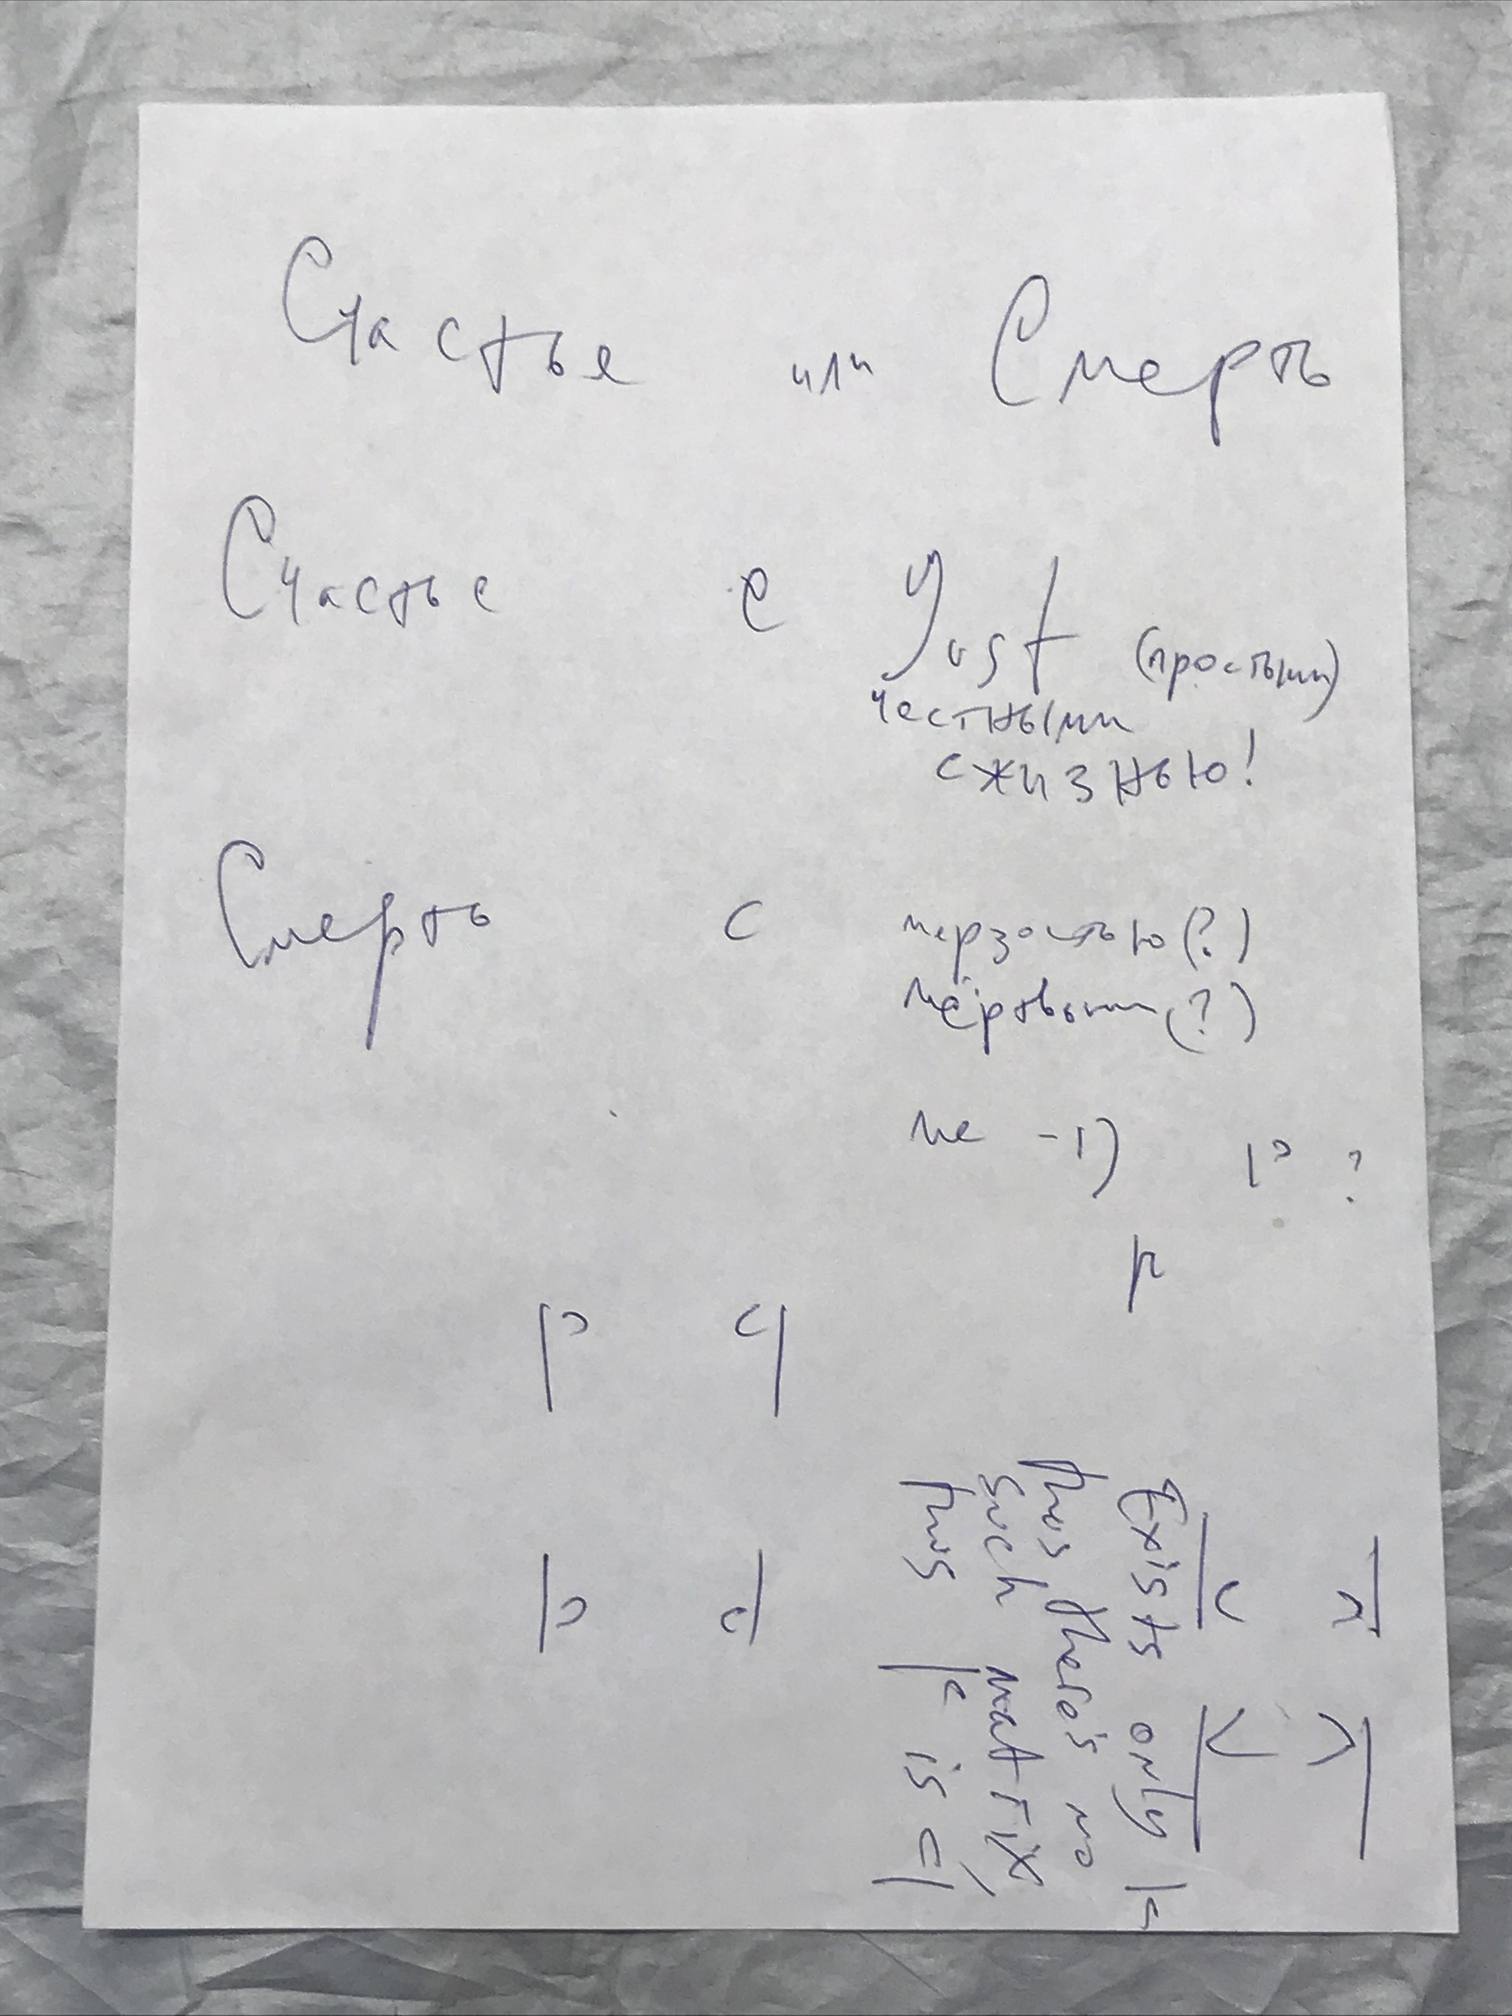 Счастье или Смерть
Счастье с Just (простыми)
честными
с жизнью!
Смерть с мерзостью(?)
мёртвыми(?)
не -1) ?
p q
b d
Exists only
thus there's no
such matrix
thus is